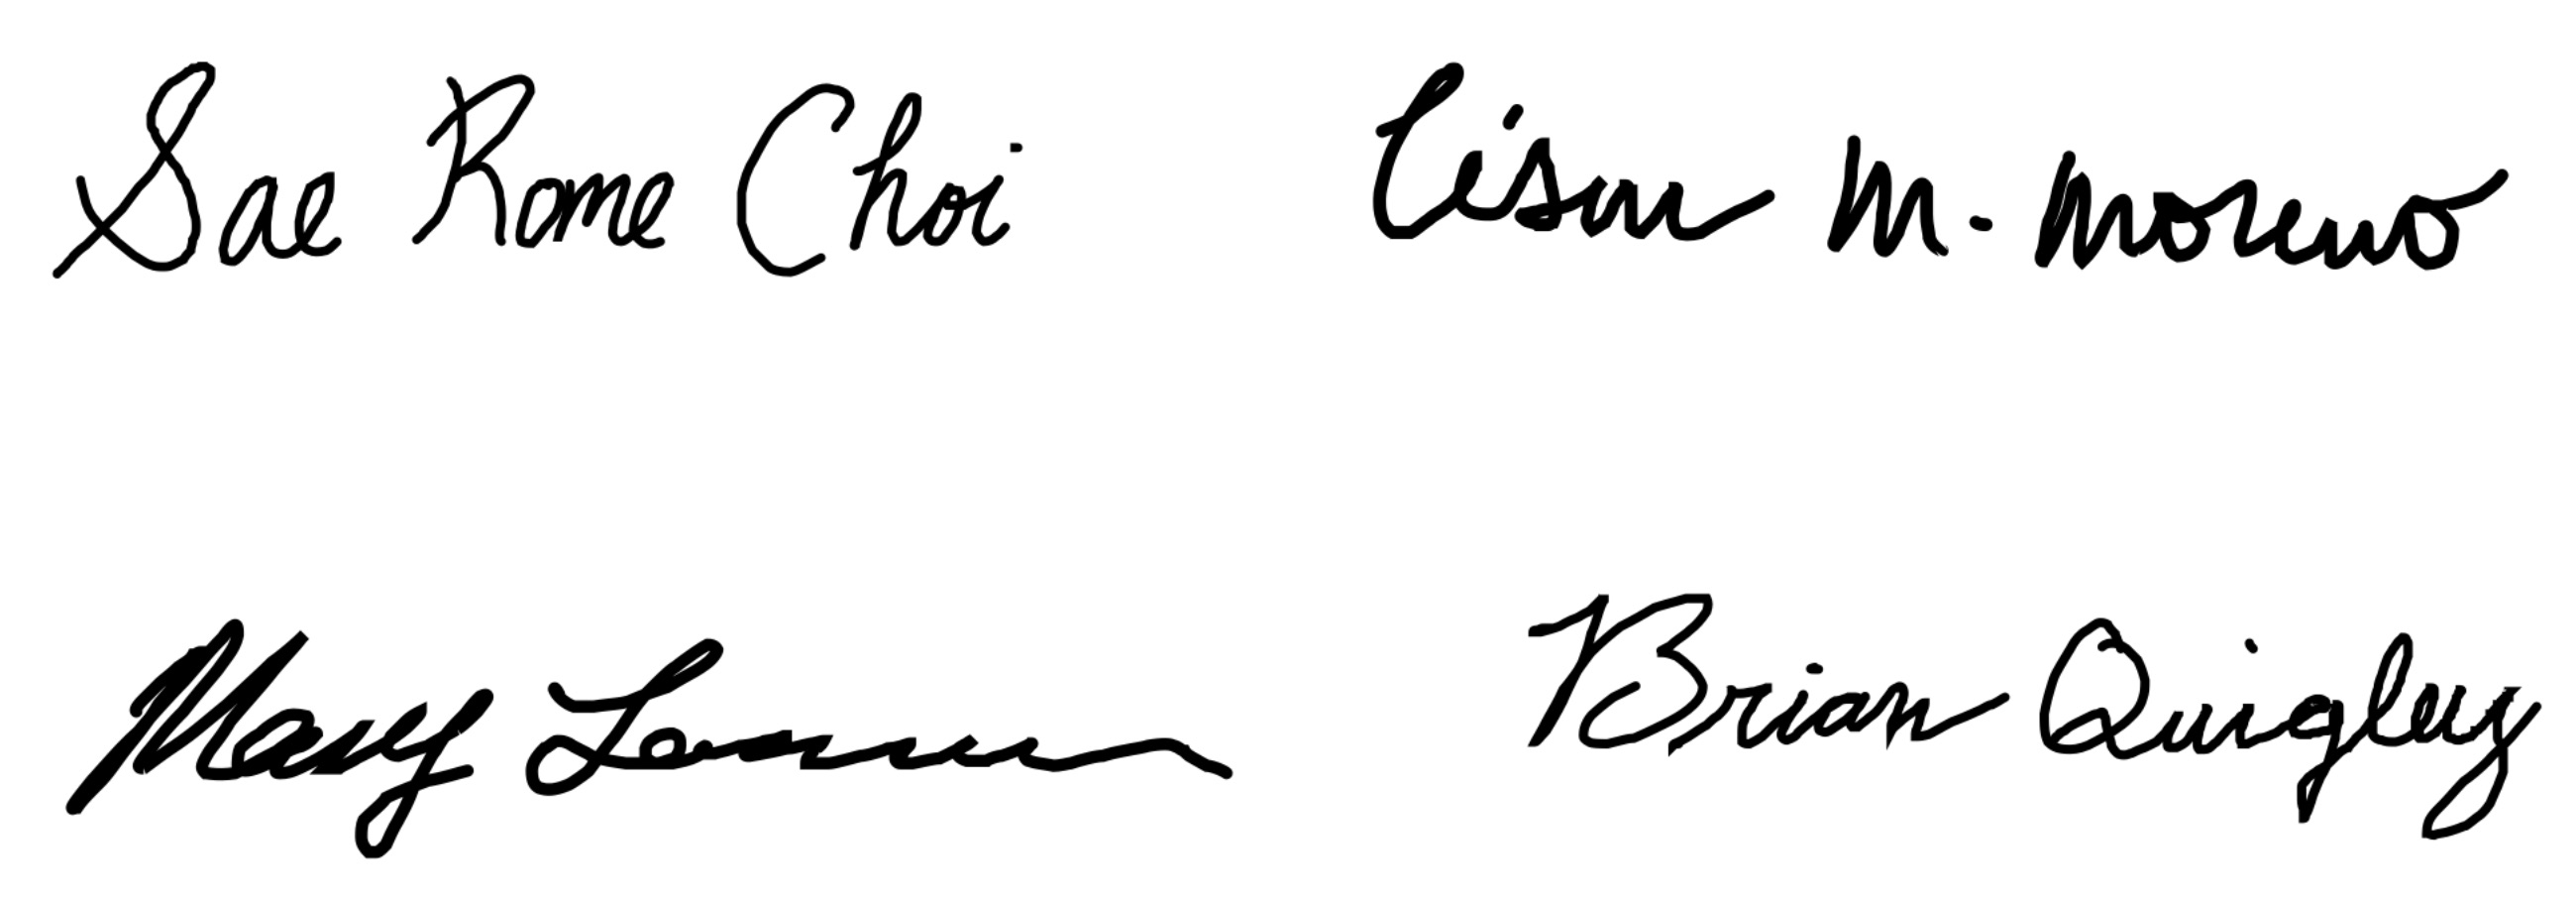 Sae Rome Choi
M. Moreno
Mary
Brian Quigley